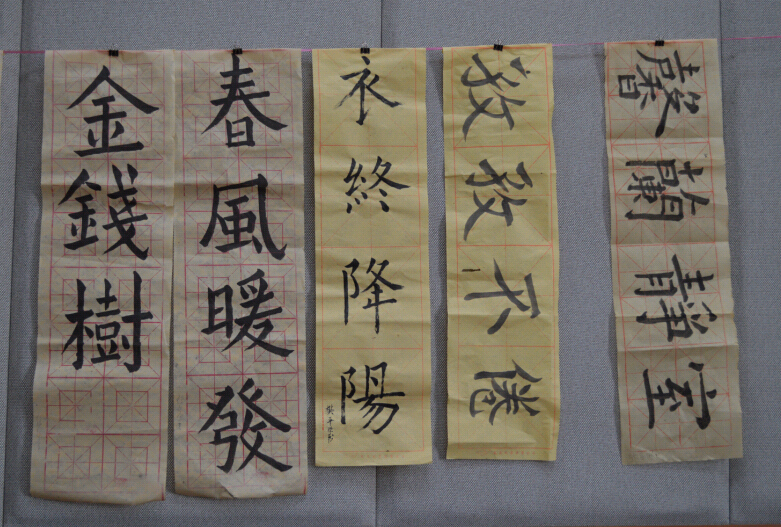 金錢樹
春風暖發
衣終降陽
孜孜不倦
馨蘭靜室